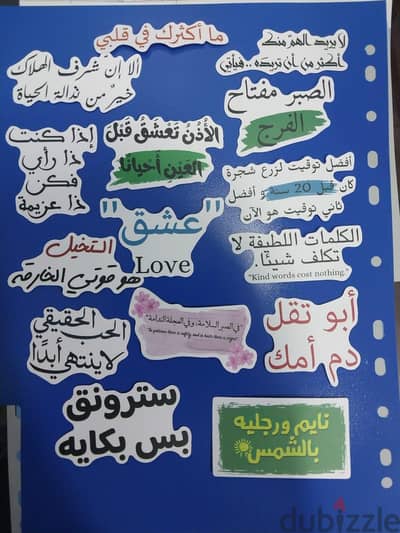 ما أكثرك في قلبي
لا يريد الهمّ منك
أكثر من أن تريده.. فيأتي
ألا إنّ شرف الهلاك
خيرٌ من نذالة الحياة
الصبر مفتاح
الفرج
الأُذُن تَعْشَقُ قَبْلَ
العَيْنِ أحيانًا
إذا كنت
ذا رأي
فكن
ذا عزيمة
أفضل توقيت لزرع شجرة
كان قبل 20 سنة و أفضل
ثاني توقيت هو الآن
"عشق"
Love
الكلمات اللطيفة لا
تكلف شيئًا.
"Kind words cost nothing."
التخيل
هو قوتي الخارقة
أبو تقل
دم أمك
"في الصبر السلامة، وفي العجلة الندامة"
"In patience there is safety, and in haste there is regret"
الحب الحقيقي
لا ينتهي أبدًا
سترونق
بس بكايه
نايم ورجليه
بالشمس
dubizzle